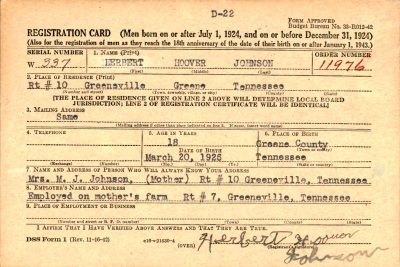 D-22
FORM APPROVED
Budget Bureau No. 33-R012-42
REGISTRATION CARD (Men born on or after July 1, 1924, and on or before December 31, 1924)
(Also for the registration of men as they reach the 18th anniversary of the date of their birth on or after January 1, 1943.)
SERIAL NUMBER 1. NAME (Print) ORDER NUMBER
W 397 HERBERT HOOVER JOHNSON 11976
(First) (Middle) (Last)
2. PLACE OF RESIDENCE (Print)
Rt # 10 Greeneville, Greene Tennessee
(Number and street) (Town, township, village, or city) (County) (State)
[THE PLACE OF RESIDENCE GIVEN ON LINE 2 ABOVE WILL DETERMINE LOCAL BOARD
JURISDICTION; LINE 2 OF REGISTRATION CERTIFICATE WILL BE IDENTICAL]
3. MAILING ADDRESS
Same
(Mailing address if other than place indicated on line 2. If same, insert word same)
4. TELEPHONE 5. AGE IN YEARS 6. PLACE OF BIRTH
18 Greene County
DATE OF BIRTH (Town or county)
March 20, 1926 Tennessee
(Exchange) (Number) (Mo.) (Day) (Yr.) (State or country)
7. NAME AND ADDRESS OF PERSON WHO WILL ALWAYS KNOW YOUR ADDRESS
Mrs. M. J. Johnson, (Mother) Rt # 10 Greeneville, Tennessee
8. EMPLOYER'S NAME AND ADDRESS
Employed on mother's farm Rt # 7, Greeneville, Tennessee
9. PLACE OF EMPLOYMENT OR BUSINESS
(Number and street or R. F. D. number) (Town) (County) (State)
I AFFIRM THAT I HAVE VERIFIED ABOVE ANSWERS AND THAT THEY ARE TRUE.
DSS Form 1 (Rev. 11-16-42) Herbert Hoover
(Registrant's signature)
Johnson